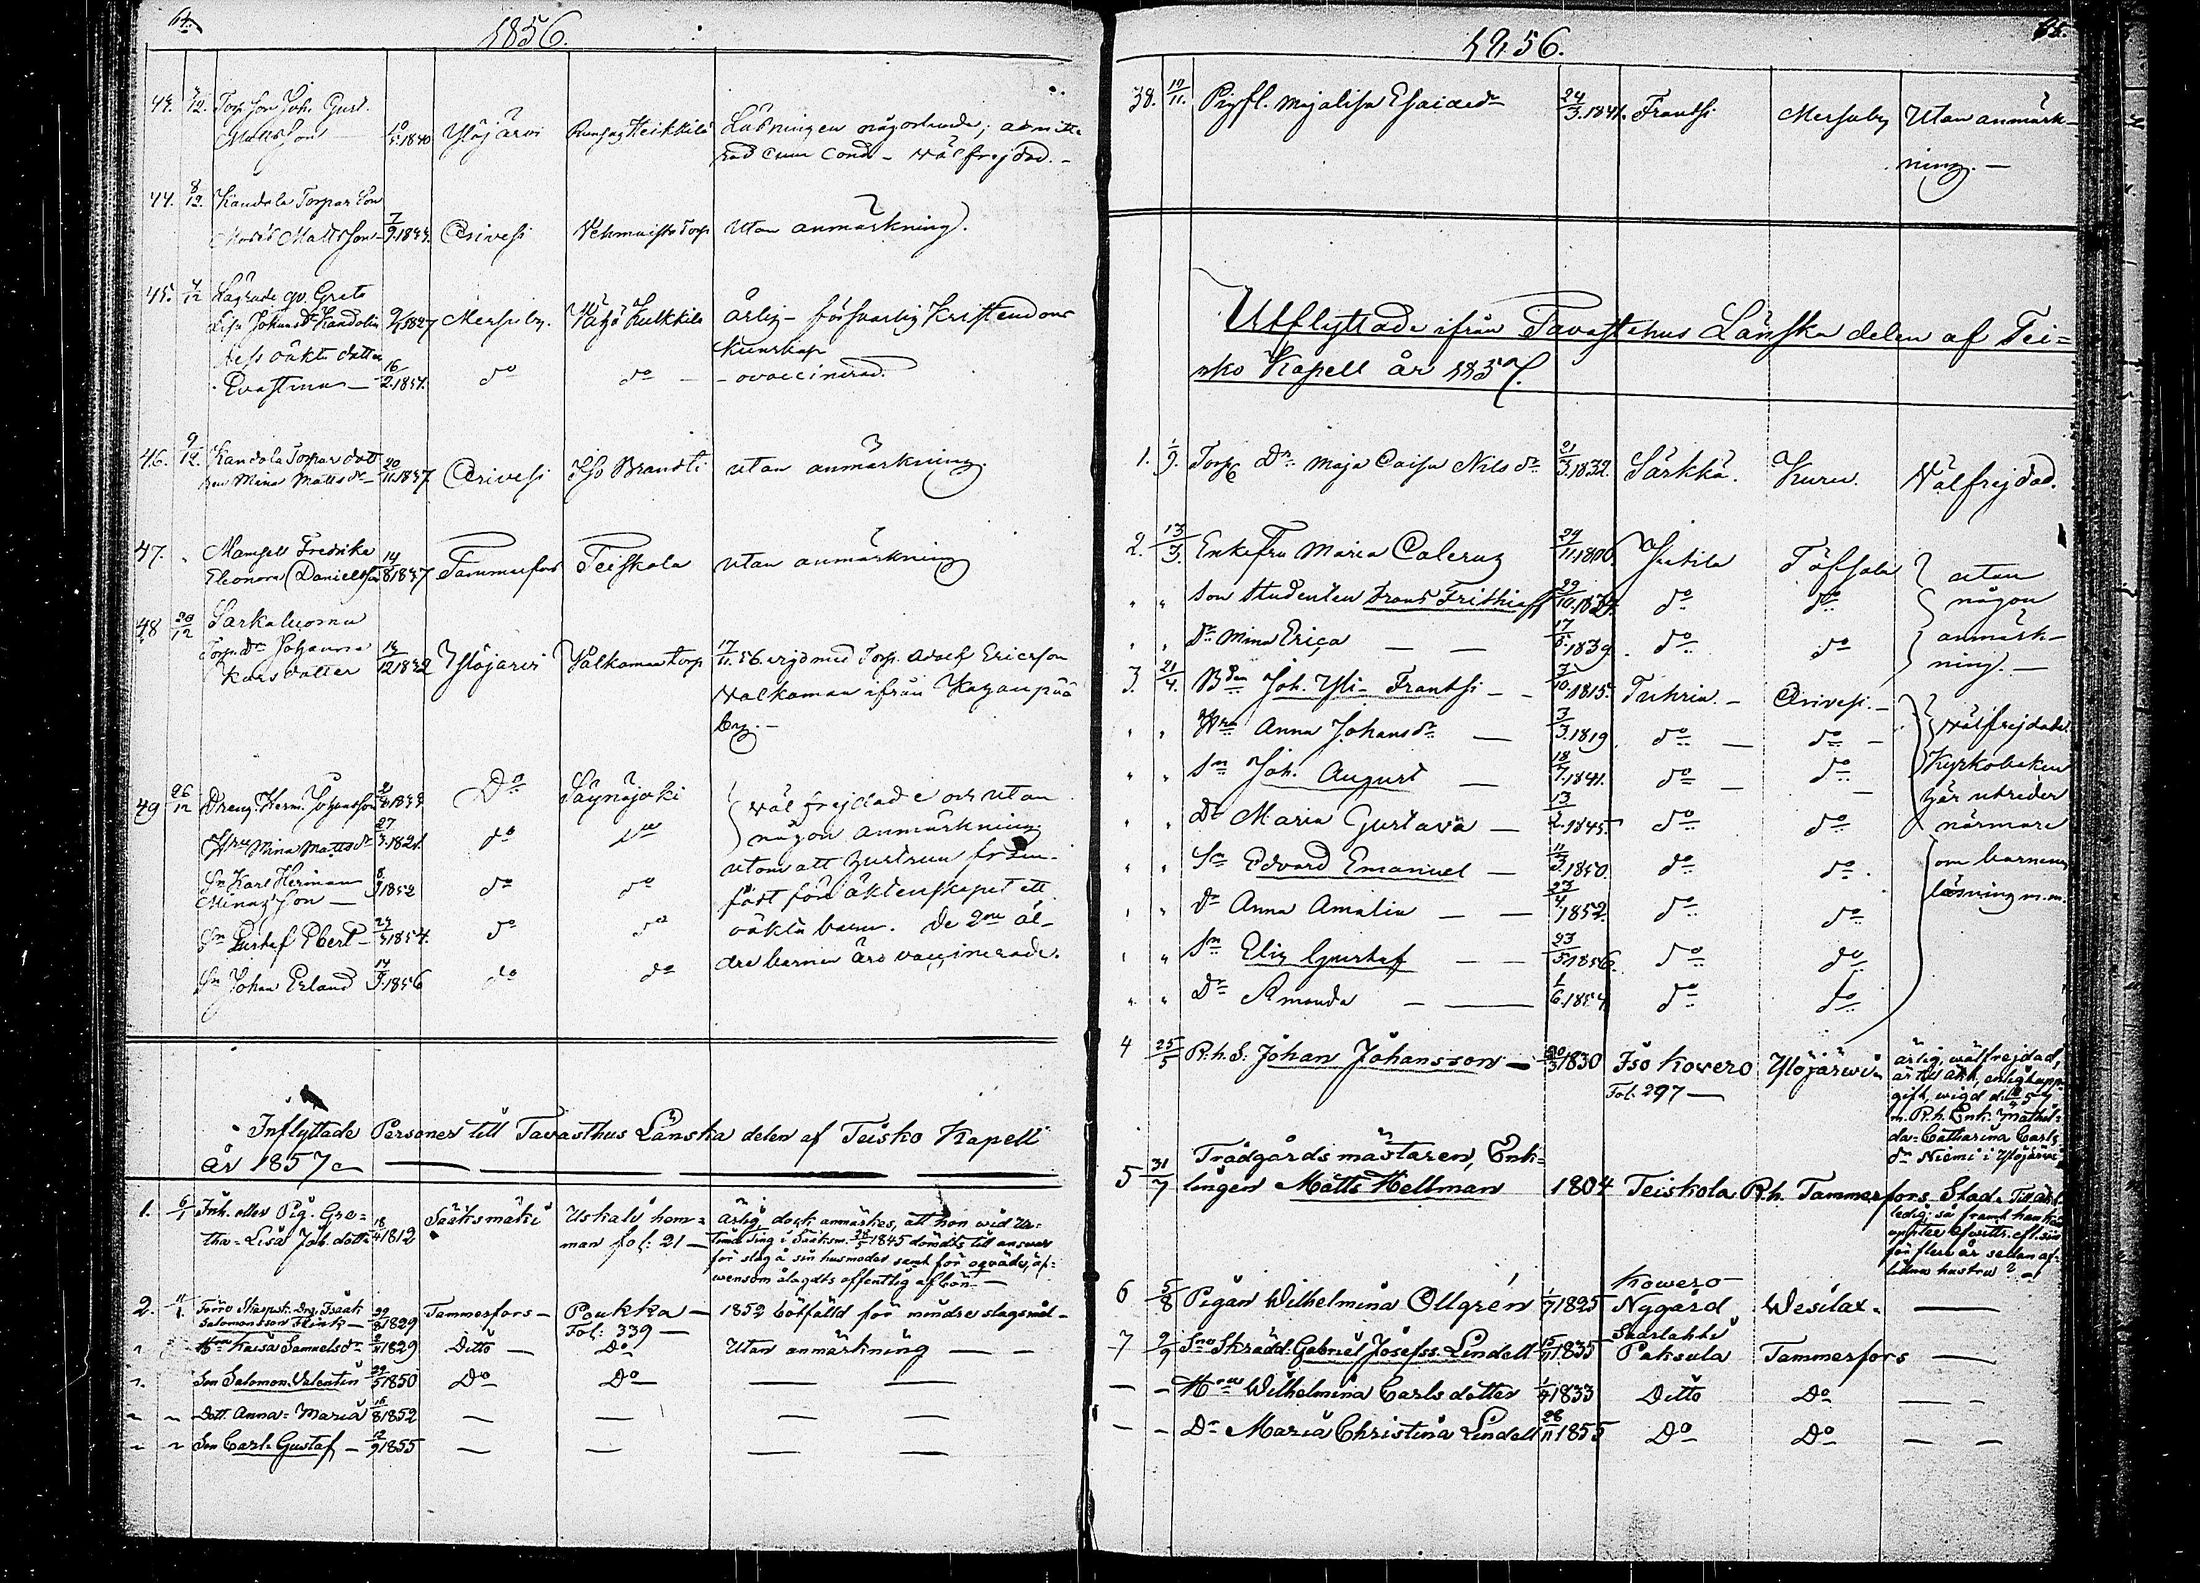 64.
1856.
43. 4/12. Torp. Son Joh. Gust.
Mattsson 1840 Ylöjärvi Heikkilä Läsningen någorlunda; admitte-
rad cum cond. – välfrejdad. –
44. 8/12. Kandola Torpar Son
Moses Mattsson 7/9.1833. Orivesi Torp Utan anmärkning.
45. 9/12 Lägrade qv. Greta
Lisa Johansdr Kandolin 1827 Messuby. Kulkkila ärlig – försvarlig Kristendoms
Kunskap
dess oäkta dotter
Evastina – 16/2.1857. do do – – ovaccinerad.
46. 9/12. Kandola Torpar dot
ter Mina Mattsdr – 20/11.1837 Orivesi Iso Brandti utan anmärkning.
47. Mamsell Fredrika
Eleonora Danielsson 14/8 1837 Tammerfors Teiskola utan anmärkning
48 20/12 Sarkaluoma
Torp. Dr Johanna
Karsdotter 14/12 1832 Ylöjärvi Valkaman torp 17/11.56. vigd med Torp. Adolf Ericsson
Valkaman ifrån
by. –
49 26/12 Dreng. Herm. Johansson 1833 Do Säynäjoki välfrejdade och utan
någon anmärkning
Hru Mina Mattsdr 27/3.1821. do do utom att hustrun fram-
Sn Karl Herman
Minas Son – 1852 do do födt före äktenskapet ett
Sn Gustaf Ebert – 24/3 1854. do do oäkta barn. De 2ne äl-
Sn Johan Erland 17/9.1856 do do dre barnen äro vaccinerade.
Inflyttade Personer till Tavasthus Länska delen af Teisko Kapell
år 1857.
1. 6/1 Inh. eller Pig. Gre-
tha-Lisa Joh. dotter 18/4 1812 Sääksmäki Uskali hem-
man fol: 21 – ärlig, dock anmärkes, att hon vid Ur-
tima Ting i Sääksm. 1845 dömdts till ansvar
för slag å sin husmoder samt för oqväde, äf-
vensom ålagdts offentlig afbön –
2. 11/1 Isaak
Salomonsson Flink – 29/8 1829 Tammerfors – Poukka –
Fol: 339 – 1852 bötfälld för mindre slagsmål –
" Hru Kaisa Samuelsdr 2/11 1829 Ditto – Do Utan anmärkning – –
" Son Salomon Valentin 29/5 1850 Do Do – –
" " Dott. Anna-Maria 16/8 1852 – – – –
" " Son Carl-Gustaf – 12/9 1855 – – – –
65.
1856.
38. 10/11. Pigfl. Majalisa Esaiædr 24/3.1841. Frantsi Messuby Utan anmärk-
ning. –
Utflyttade ifrån Tavastehus Länska delen af Tei-
sko Kapell år 1857.
1. 1/9. Torp. Dr. Maja Caisa Nilsdr 21/3.1832. Särkkä. Kuru. Välfrejdad.
2. 13/3. Enkefru Maria Calerus 29/11.1800. Juttila Töfsala utan
" " son studenten Frans Frithioff 29/10.1834. do do någon
" " Dr Mina Erica – – 17/6.1839. do do anmärk-
ning. –
3. 21/4. Bden Joh. Yli-Frantsi – – 3/10.1815. Tuhria. – Orivesi. –
" " Hru Anna Johansdr – 3/3.1819. do – do – välfrejdade.
" " Sn Joh. August – 18/7.1841. do – do – Kyrkoboken
här utreder
" " Dr Maria Gustava – 13/2.1845. do do närmare
" " Sn Edvard Emanuel – 11/3.1850. do do om barnens
" " Dr Anna Amalia – – 27/4.1852. do do läsning m.m.
" " Sn Elis Gustaf – – 23/5.1856. do do
" " Dr Amanda – – 1/6.1854 do do
4 25/5 R.h.S. Johan Johansson – 20/3 1830 Iso Kovero
Fol. 297 – Ylöjärvi ärlig, välfrejdad,
är till äkt. enligt upp-
gift, vigd
m. R.h. Enk. Mathil-
da-Catharina Carls-
dr Niemi i Ylöjärvi
5 31/7 Trädgårdsmästaren, Enk-
lingen Matts Hellman 1804 Teiskola R.h. Tammerfors Stad. Till äkt.
ledig: så framt han kan
uppte afvittr. eft. sin
för flere år sedan af-
lidna hustru? –
6 5/8 Pigan Wilhelmina Ollgrén 1/7 1825 Kowero
Nygård Wesilax. –
7 9/9 Sno Skrädd. Gabriel Josefss. Lindell 15/11 1835 Saarlahti
Paksula Tammerfors –
– – Hru Wilhelmina Carlsdotter 1/4 1833 Ditto Do – –
– – Dr Maria Christina Lindell 28/11 1855 Do Do – –